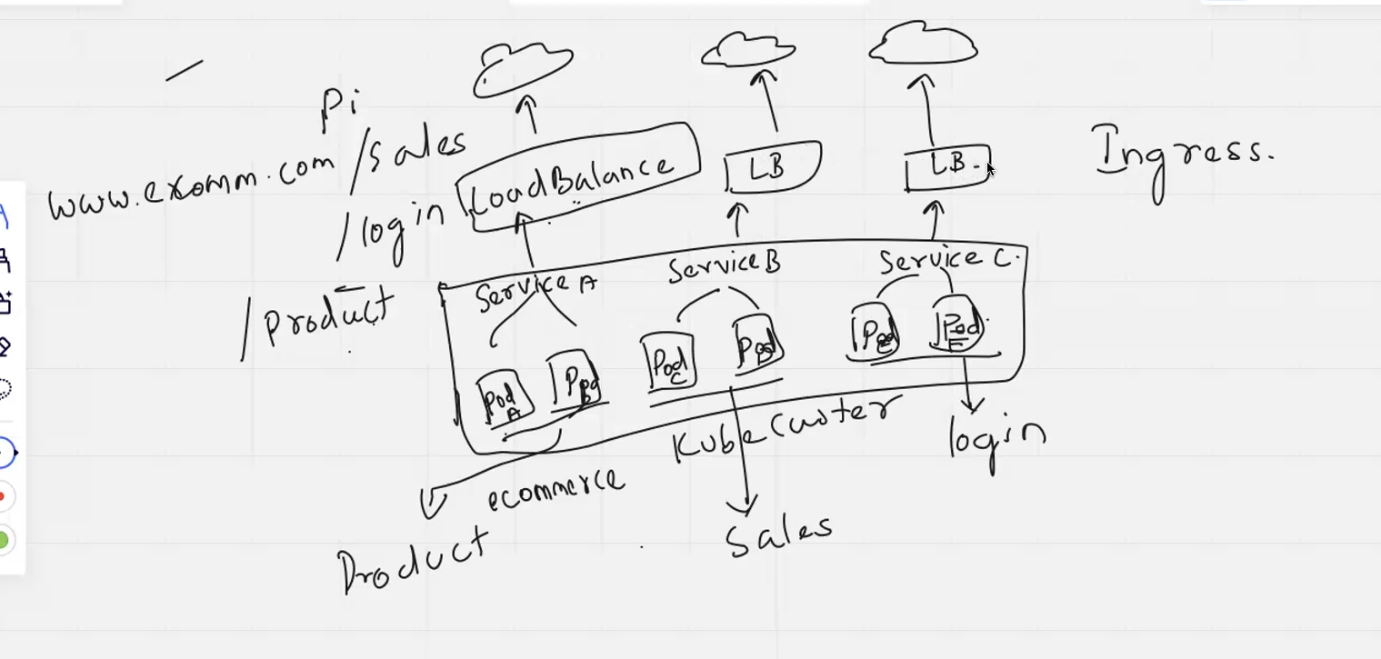 Pi
www.exomm.com /sales
/login
/product
LoadBalance
LB
LB
Ingress.
Service A
Service B
Service C.
Pod A
Pod B
Pod C
Pod
Pod E
Pod F
Kube Custer
ecommerce
Product
Sales
login